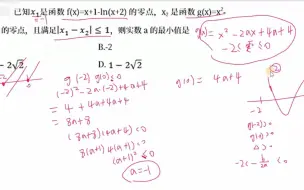 已知x₁是函数 f(x)=x+1-ln(x+2) 的零点, x₂ 是函数 g(x)=x²
的零点, 且满足|x₁-x₂|≤1, 则实数 a 的最小值是
g(x)= x² - 2ax + 4a + 4
-2≤x≤0
-2√2
B.-2
-2√2
D. 1-2√2
g(-2) g(0)≤0
(-2)²-2a(-2)+4a+4
= 4 + 4a+4a+4
= 8a+8
(8a+8)(4a+4)≤0
8(a+1)4(a+1)≤0
(a+1)²≤0
a=-1
g(0)= 4a+4
-2
g(-2)>0
g(0)>0
Δ≥0
-2<-b/2a<0